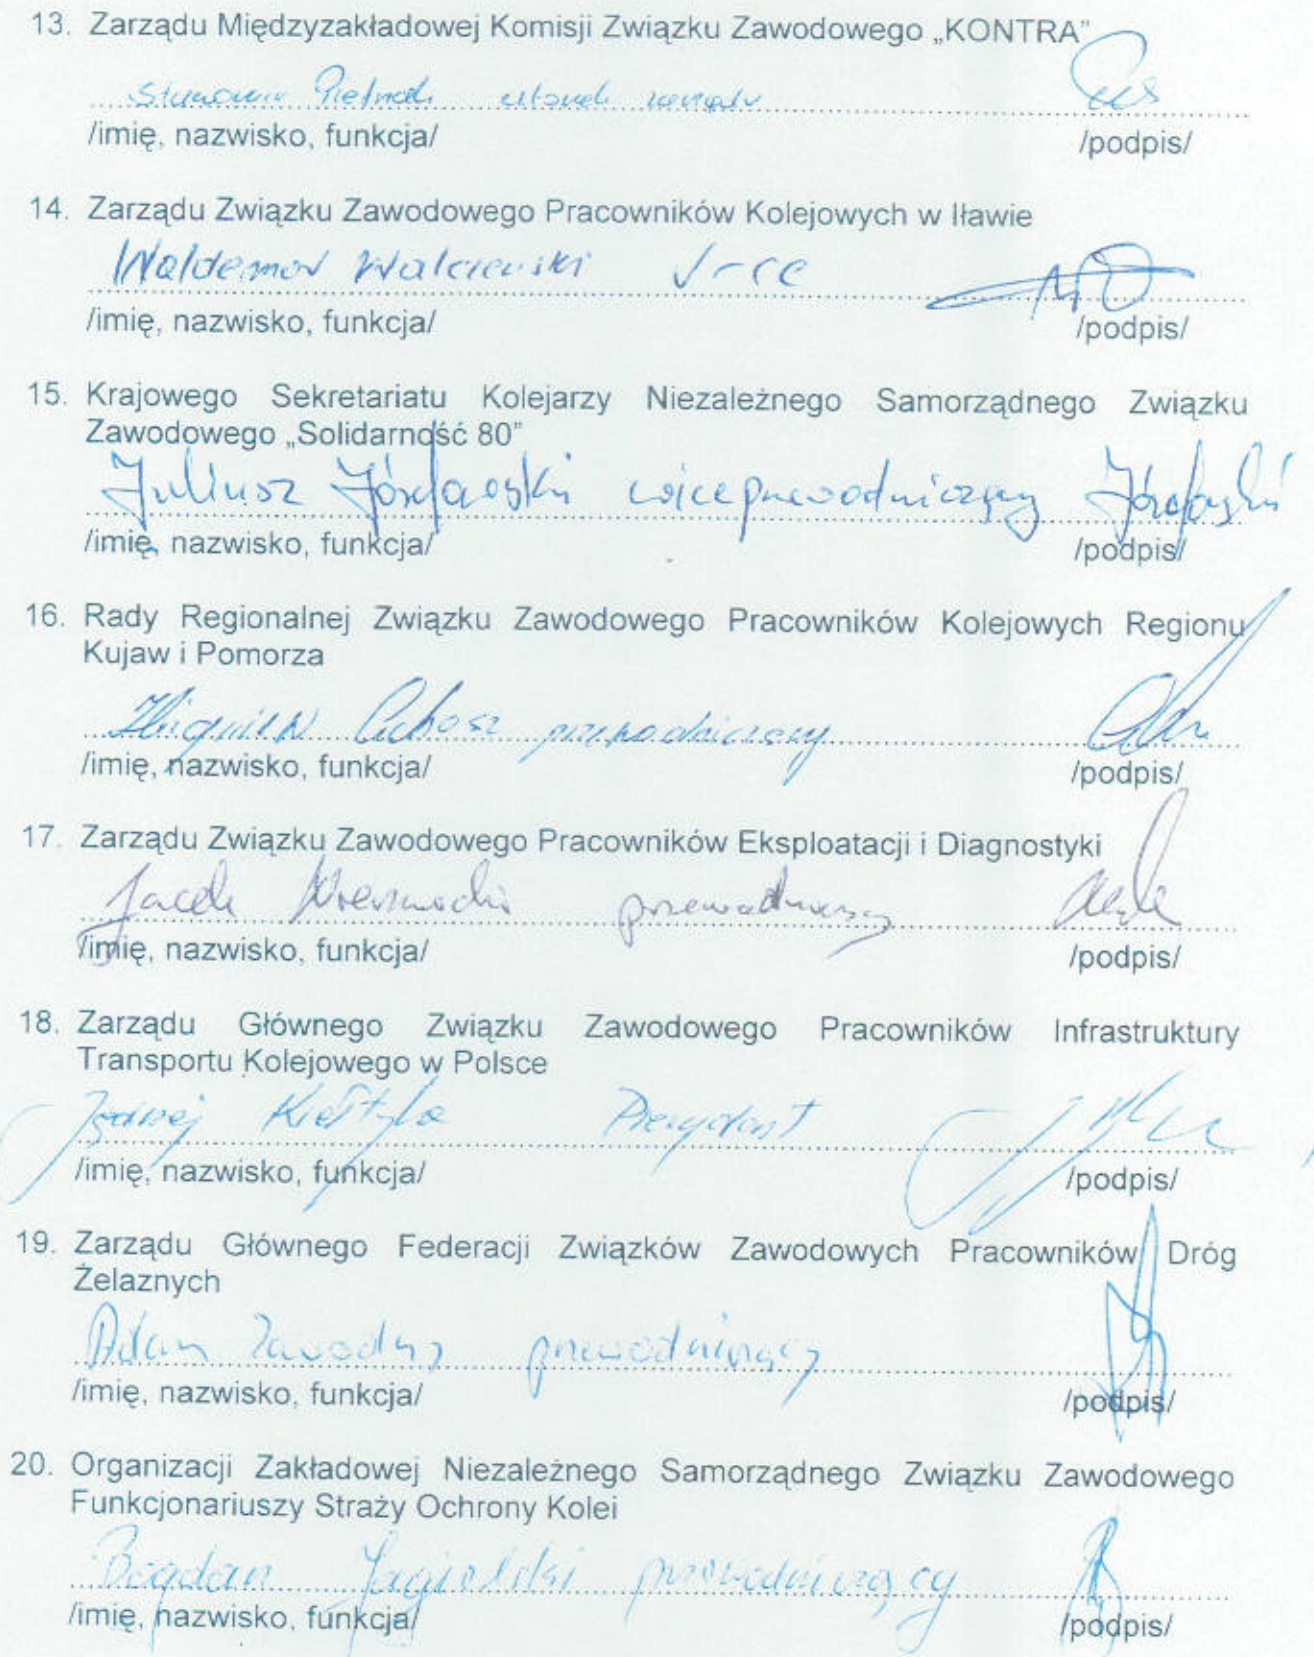 13. Zarządu Międzyzakładowej Komisji Związku Zawodowego „KONTRA”
członek zarządu
/imię, nazwisko, funkcja/ /podpis/
14. Zarządu Związku Zawodowego Pracowników Kolejowych w Iławie
Waldemar V-ce
/imię, nazwisko, funkcja/ /podpis/
15. Krajowego Sekretariatu Kolejarzy Niezależnego Samorządnego Związku
Zawodowego „Solidarność 80”
Juliusz Józefowski wiceprzewodniczący Józefowski
/imię, nazwisko, funkcja/ /podpis/
16. Rady Regionalnej Związku Zawodowego Pracowników Kolejowych Regionu
Kujaw i Pomorza
Zbigniew przewodniczący
/imię, nazwisko, funkcja/ /podpis/
17. Zarządu Związku Zawodowego Pracowników Eksploatacji i Diagnostyki
Jacek przewodniczący
/imię, nazwisko, funkcja/ /podpis/
18. Zarządu Głównego Związku Zawodowego Pracowników Infrastruktury
Transportu Kolejowego w Polsce
Prezydent
/imię, nazwisko, funkcja/ /podpis/
19. Zarządu Głównego Federacji Związków Zawodowych Pracowników Dróg
Żelaznych
Adam Zawodny przewodniczący
/imię, nazwisko, funkcja/ /podpis/
20. Organizacji Zakładowej Niezależnego Samorządnego Związku Zawodowego
Funkcjonariuszy Straży Ochrony Kolei
Bogdan Jagielski przewodniczący
/imię, nazwisko, funkcja/ /podpis/